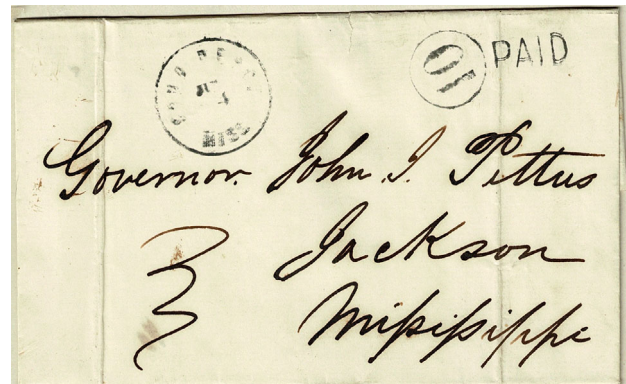 COMO DEPOT
MISS
10 PAID
Governor John J. Pettus
Jackson
Mississippi